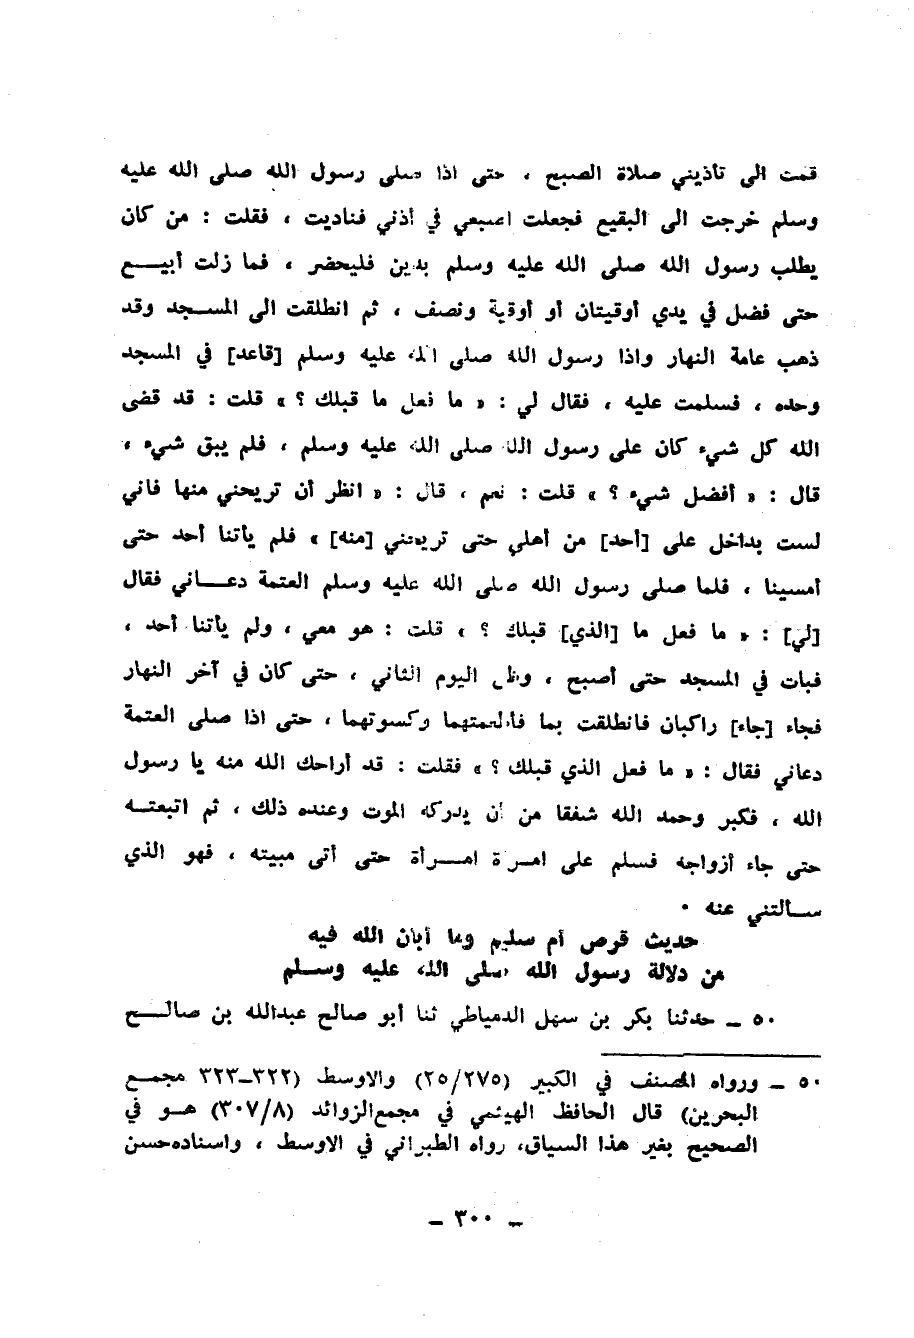 قمت الى تأذيني صلاة الصبح ، حتى اذا صلى رسول الله صلى الله عليه
وسلم خرجت الى البقيع فجعلت اصبعي في أذني فناديت ، فقلت : من كان
يطلب رسول الله صلى الله عليه وسلم بدين فليحضر ، فما زلت أبيـــع
حتى فضل في يدي أوقيتان أو أوقية ونصف ، ثم انطلقت الى المسـجد وقد
ذهب عامة النهار واذا رسول الله صلى الله عليه وسلم [قاعد] في المسجد
وحده ، فسلمت عليه ، فقال لي : « ما فعل ما قبلك ؟ » قلت : قد قضى
الله كل شيء كان على رسول الله صلى الله عليه وسلم ، فلم يبق شيء ،
قال : « أفضل شيء ؟ » قلت : نعم ، قال : « انظر أن تريحني منها فاني
لست بداخل على [أحد] من أهلي حتى تريحني [منه] » فلم يأتنا أحد حتى
أمسينا ، فلما صلى رسول الله صلى الله عليه وسلم العتمة دعـــاني فقال
[لي] : « ما فعل ما [الذي] قبلك ؟ » قلت : هو معي ، ولم يأتنا أحد ،
فبات في المسجد حتى أصبح ، وظل اليوم الثاني ، حتى كان في آخر النهار
فجاء [جاء] راكبان فانطلقت بما فأطعمتهما وكسوتهما ، حتى اذا صلى العتمة
دعاني فقال : « ما فعل الذي قبلك ؟ » فقلت : قد أراحك الله منه يا رسول
الله ، فكبر وحمد الله شفقا من أن يدركه الموت وعنده ذلك ، ثم اتبعتــه
حتى جاء أزواجه فسلم على امـرة امـــرأة حتى أتى مبيته ، فهو الذي
ســالتني عنه .
حديث قرص أم سليم وما أبان الله فيه
من دلالة رسول الله صلى الله عليه وســلم
٥٠ ــ حدثنا بكر بن سهل الدمياطي ثنا أبو صالح عبدالله بن صالـــح
٥٠ ــ ورواه المصنف في الكبير (٢٥/٢٧٥) والاوسط (٣٢٢ــ٣٢٣ مجمـــع
البحرين) قال الحافظ الهيثمي في مجمع الزوائد (٣٠٧/٨) هــو في
الصحيح بغير هذا السياق، رواه الطبراني في الاوسط ، واسناده حسن
ــ ٣٠٠ ــ